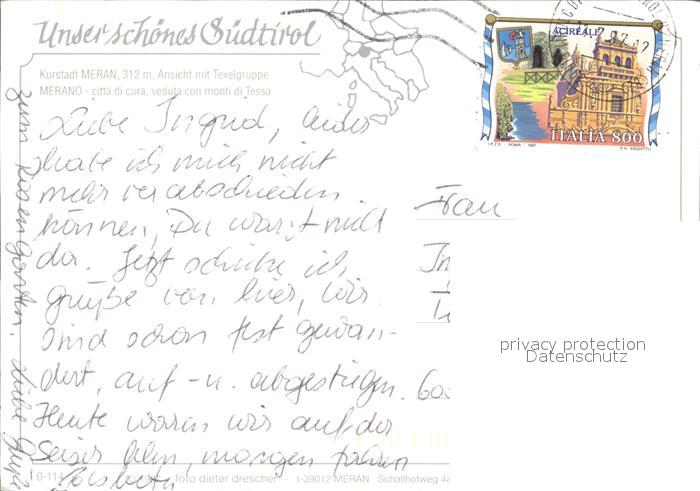 Unser schönes Südtirol
Kurstadt MERAN, 312 m, Ansicht mit Texelgruppe
MERANO - città di cura, veduta con monti di Tessa
ACIREALE
ITALIA 800
I.P.Z.S. - ROMA - 1997
Liebe Ingrid, leider
habe ich mich nicht
mehr verabschieden
können, Du warst nicht
da. Jetzt schicke ich
Grüße von hier, wir
sind schon fest gewan-
dert, auf- u. abgestiegen.
Heute waren wir auf der
Seiser Alm, morgen fahren
zum Rosengarten. Liebe
Frau
In
privacy protection
Datenschutz
foto dieter drescher
I-39012 MERAN